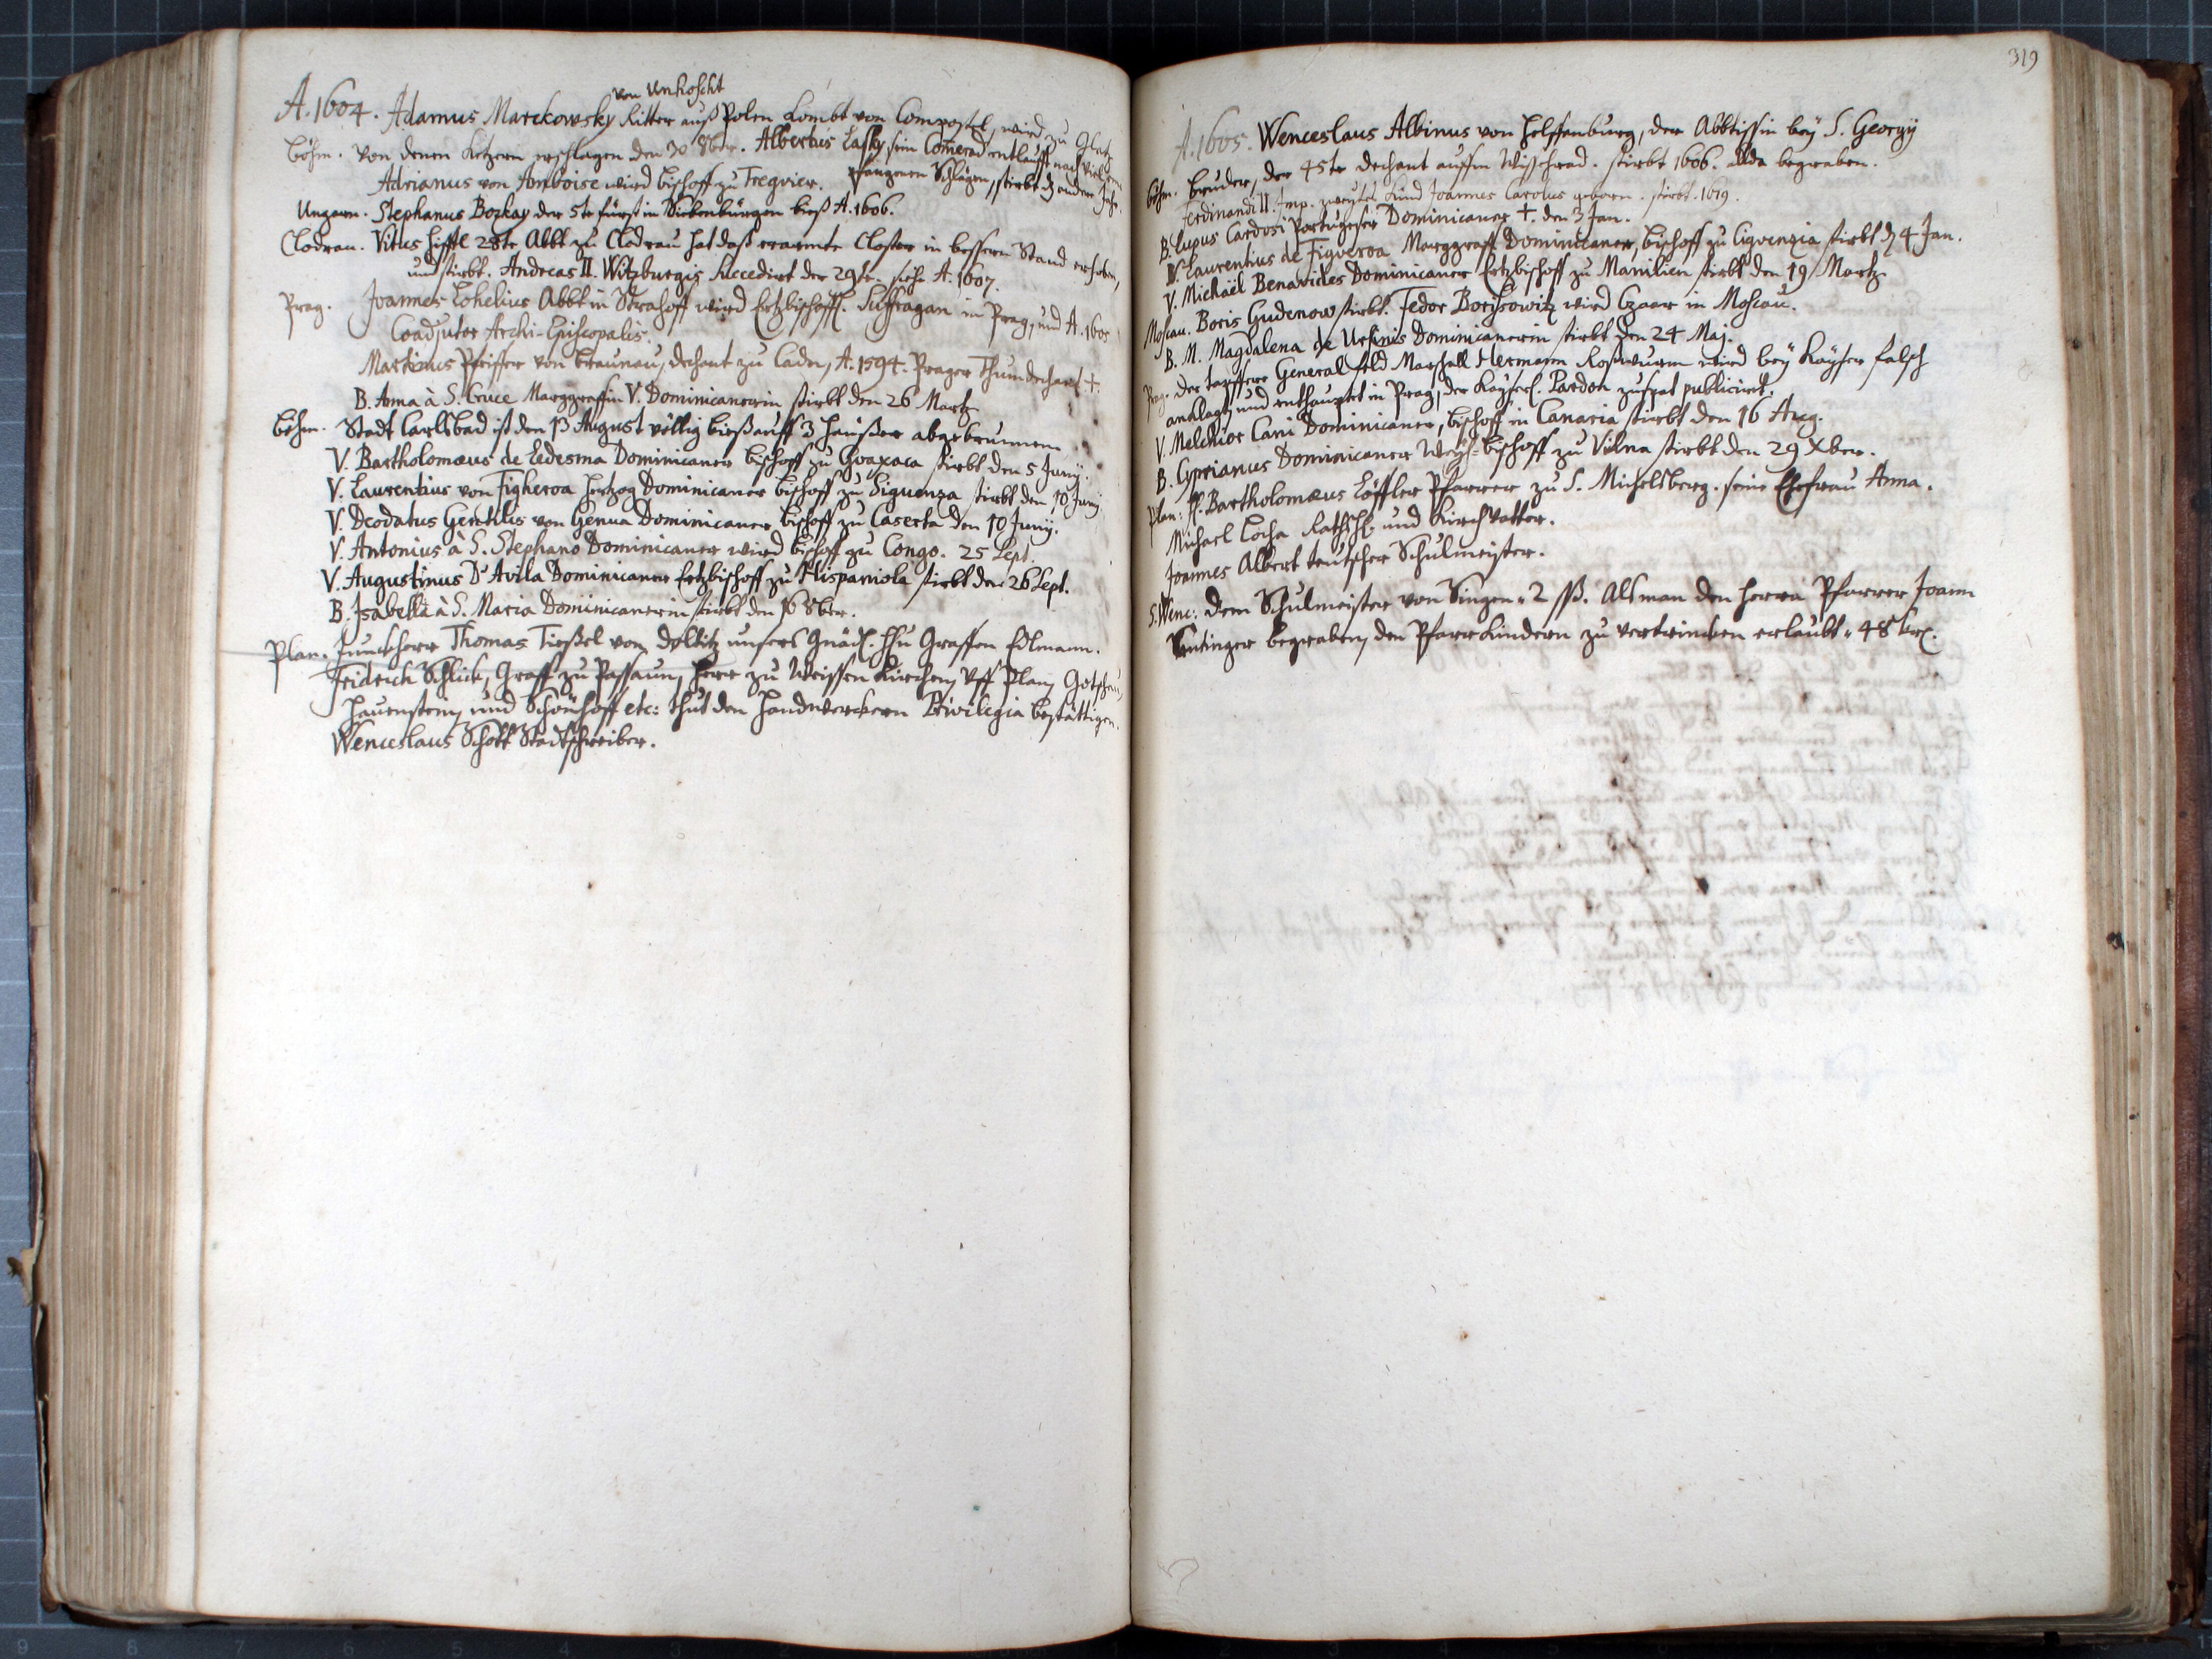 von Unkoscht
A. 1604. Adamus Marckowsky Ritter auß Polen kombt von Compostel, wird zu Glatz
Böhm. von denen Ketzern erschlagen den 30 8ber. Albertus Lasky sein Comerad entlaufft nach vielen
Adrianus von Amboise wird Bischoff zu Tregvier. Schlägen, stirbt dz andere Jahr.
Ungarn. Stephanus Bozkay der 5te fürst in Siebenbürgen bieß A. 1606.
Clodrau. Vitus Hifftl 28te Abbt zu Clodrau hat daß erarmte Closter in bessern Stand erhoben,
und stirbt. Andreas II. Witzburgis succedirt der 29te. siehe A. 1607.
Prag. Joannes Lohelius Abbt in Strahoff wird Ertzbischoffl. Suffragan in Prag, und A. 1605
Coadjutor Archi-Episcopalis.
Martinus Pfeiffer von Braunau, dechant zu Caden, A. 1594. Prager Thumdechant †.
B. Anna à S. Cruce Marggraffin V. Dominicanerin stirbt den 26 Martz.
Böhm. Stadt Carlsbad ist den 13 August völlig bieß auff 3 Haüßer abgebrunnen.
V. Bartholomæus de Ledesma Dominicaner Bischoff zu Gvaxaca stirbt den 5 Junij.
V. Laurentius von Figheroa Hertzog Dominicaner Bischoff zu Siguenza stirbt den 10 Junij
V. Deodatus Gentilis von Genua Dominicaner Bischoff zu Caserta den 10 Junij.
V. Antonius à S. Stephano Dominicaner wird Bischoff zu Congo. 25 Sept.
V. Augustinus D'Avila Dominicaner Ertzbischoff zu Hispaniola stirbt den 26 Sept.
B. Isabella à S. Maria Dominicanerin stirbt den 16 8ber.
Plan. Junckherr Thomas Tießel von Doltitz unsers Gnäd. Hhn Graffen Edlmann.
Fridrich Schlick, Graff zu Passaun, Herr zu Weissen Kirchen, Uff Plan, Gotschau,
Hauenstein, und Schönhoff etc: thut den Handwerckern Privilegia bestättigen.
Wenceslaus Schott Stadtschreiber.
319
A. 1605. Wenceslaus Albinus von Helffenburg, der Abbtissin bey S. Georgij
Böhm. Bruder, der 45te dechant auffm Wisschrad. stirbt 1606. allda begraben.
Ferdinandi II. Imp. zweytes Kind Joannes Carolus geborn. stirbt. 1619.
B. Lupus Cardosi Portugeser Dominicaner †. den 3 Jan.
V. Laurentius de Figveroa Marggraff Dominicaner, Bischoff zu Ciguenzia stirbt dz 4 Jan.
V. Michaël Benavides Dominicaner Ertzbischoff zu Manilien stirbt den 19 Martz
Moscau. Boris Gudenow stirbt. Fedor Borissowitz wird Czaar in Moscau.
B. M. Magdalena de Ursinis Dominicanerin stirbt den 24 Maj.
Prag. der tapffere General feld Marschall Hermann Roßwurm wird bey Kayser falsch
anklagt, und enthauptet in Prag, der Kayserl. Pardon zuspat publicirt.
V. Melchior Cani Dominicaner, Bischoff in Canaria stirbt den 16 Aug.
B. Cyprianus Dominicaner Weyh-Bischoff zu Vilna stirbt den 29 Xber.
Plan: Bartholomæus Löffler Pfarrer zu S. Michelsberg. seine Ehefrau Anna.
Michael Locha Rathsh. und Kirchvatter.
Joannes Albert teutscher Schulmeister.
S. Wenc: dem Schulmeister von Singen. 2 ß. Als man den Herrn Pfarrer Joann
begraben, den Pfarrkindern zu vertrincken erlaubt. 48 krz.